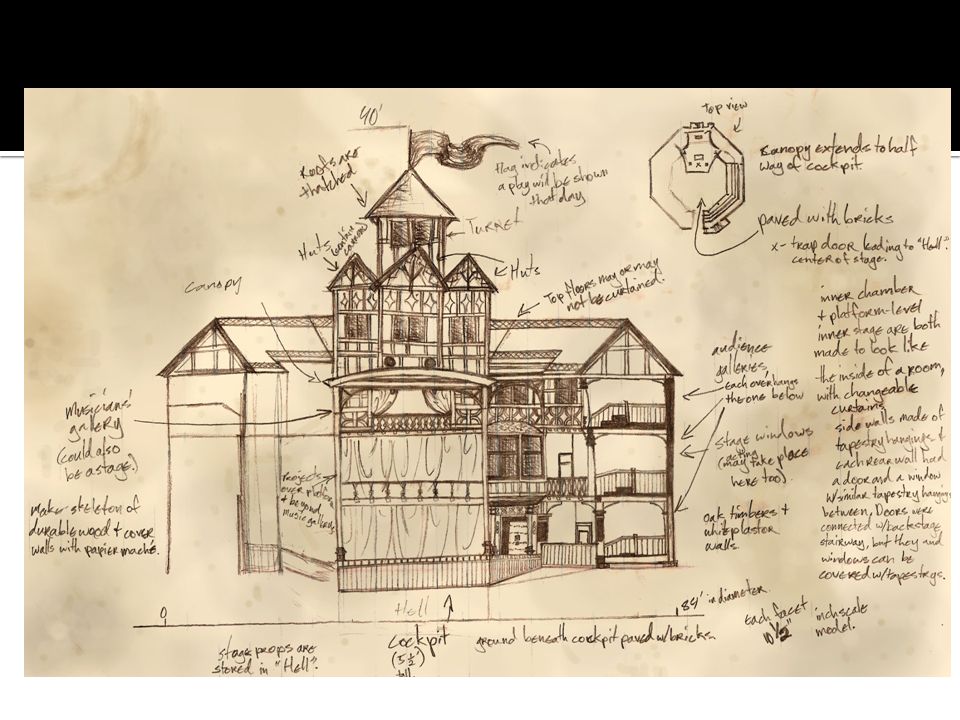 40'
Top view
Roofs are
thatched
flag indicates
a play will be shown
that day
Canopy extends to half
way of cockpit.
Turret
paved with bricks
x - trap door leading to "Hell".
center of stage.
Huts
(contain
cannon)
Huts
Top floors may or may
not be curtained.
Canopy
inner chamber
& platform-level
inner stage are both
made to look like
the inside of a room,
with changeable
curtains
side walls made of
tapestry hangings &
each rear wall had
a door and a window
w/similar tapestry hanging
between, Doors were
connected w/backstage
stairway, but they and
windows can be
covered w/tapestrys.
audience
galleries,
Each overhangs
the one below
Musicians'
gallery
(could also
be a stage.)
Stage windows
(acting
may take place
here too).
Projects
over platform
& beyond
music gallery
make skeleton of
durable wood & cover
walls with papier maché.
oak timbers &
white plaster
walls.
Hell
0
84' in diameter.
Each facet
10 1/2"
inch scale
model.
Cockpit
(5 1/2')
tall.
ground beneath cockpit paved w/bricks.
stage props are
stored in "Hell".